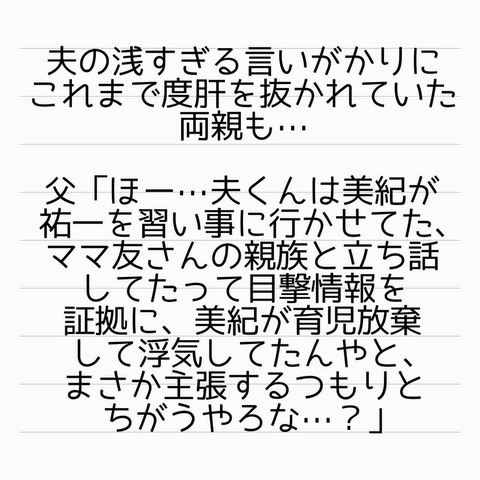 夫の浅すぎる言いがかりに
これまで度肝を抜かれていた
両親も…
父「ほー…夫くんは美紀が
祐一を習い事に行かせてた、
ママ友さんの親族と立ち話
してたって目撃情報を
証拠に、美紀が育児放棄
して浮気してたんやと、
まさか主張するつもりと
ちがうやろな…？」